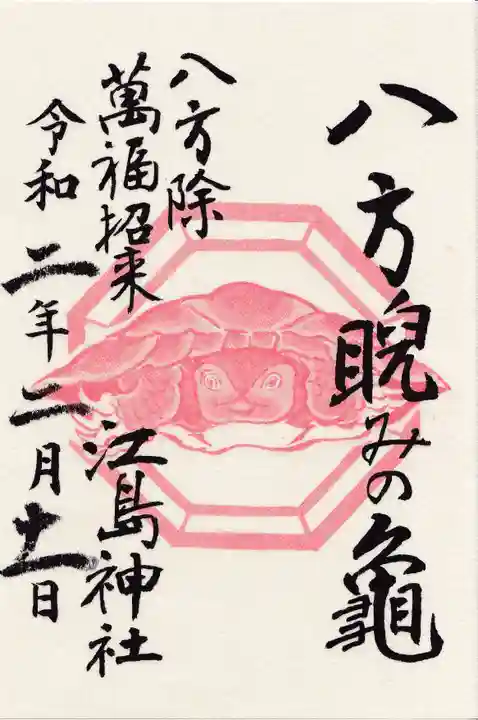 八方睨みの亀
八方除
萬福招来
江島神社
令和二年二月十一日